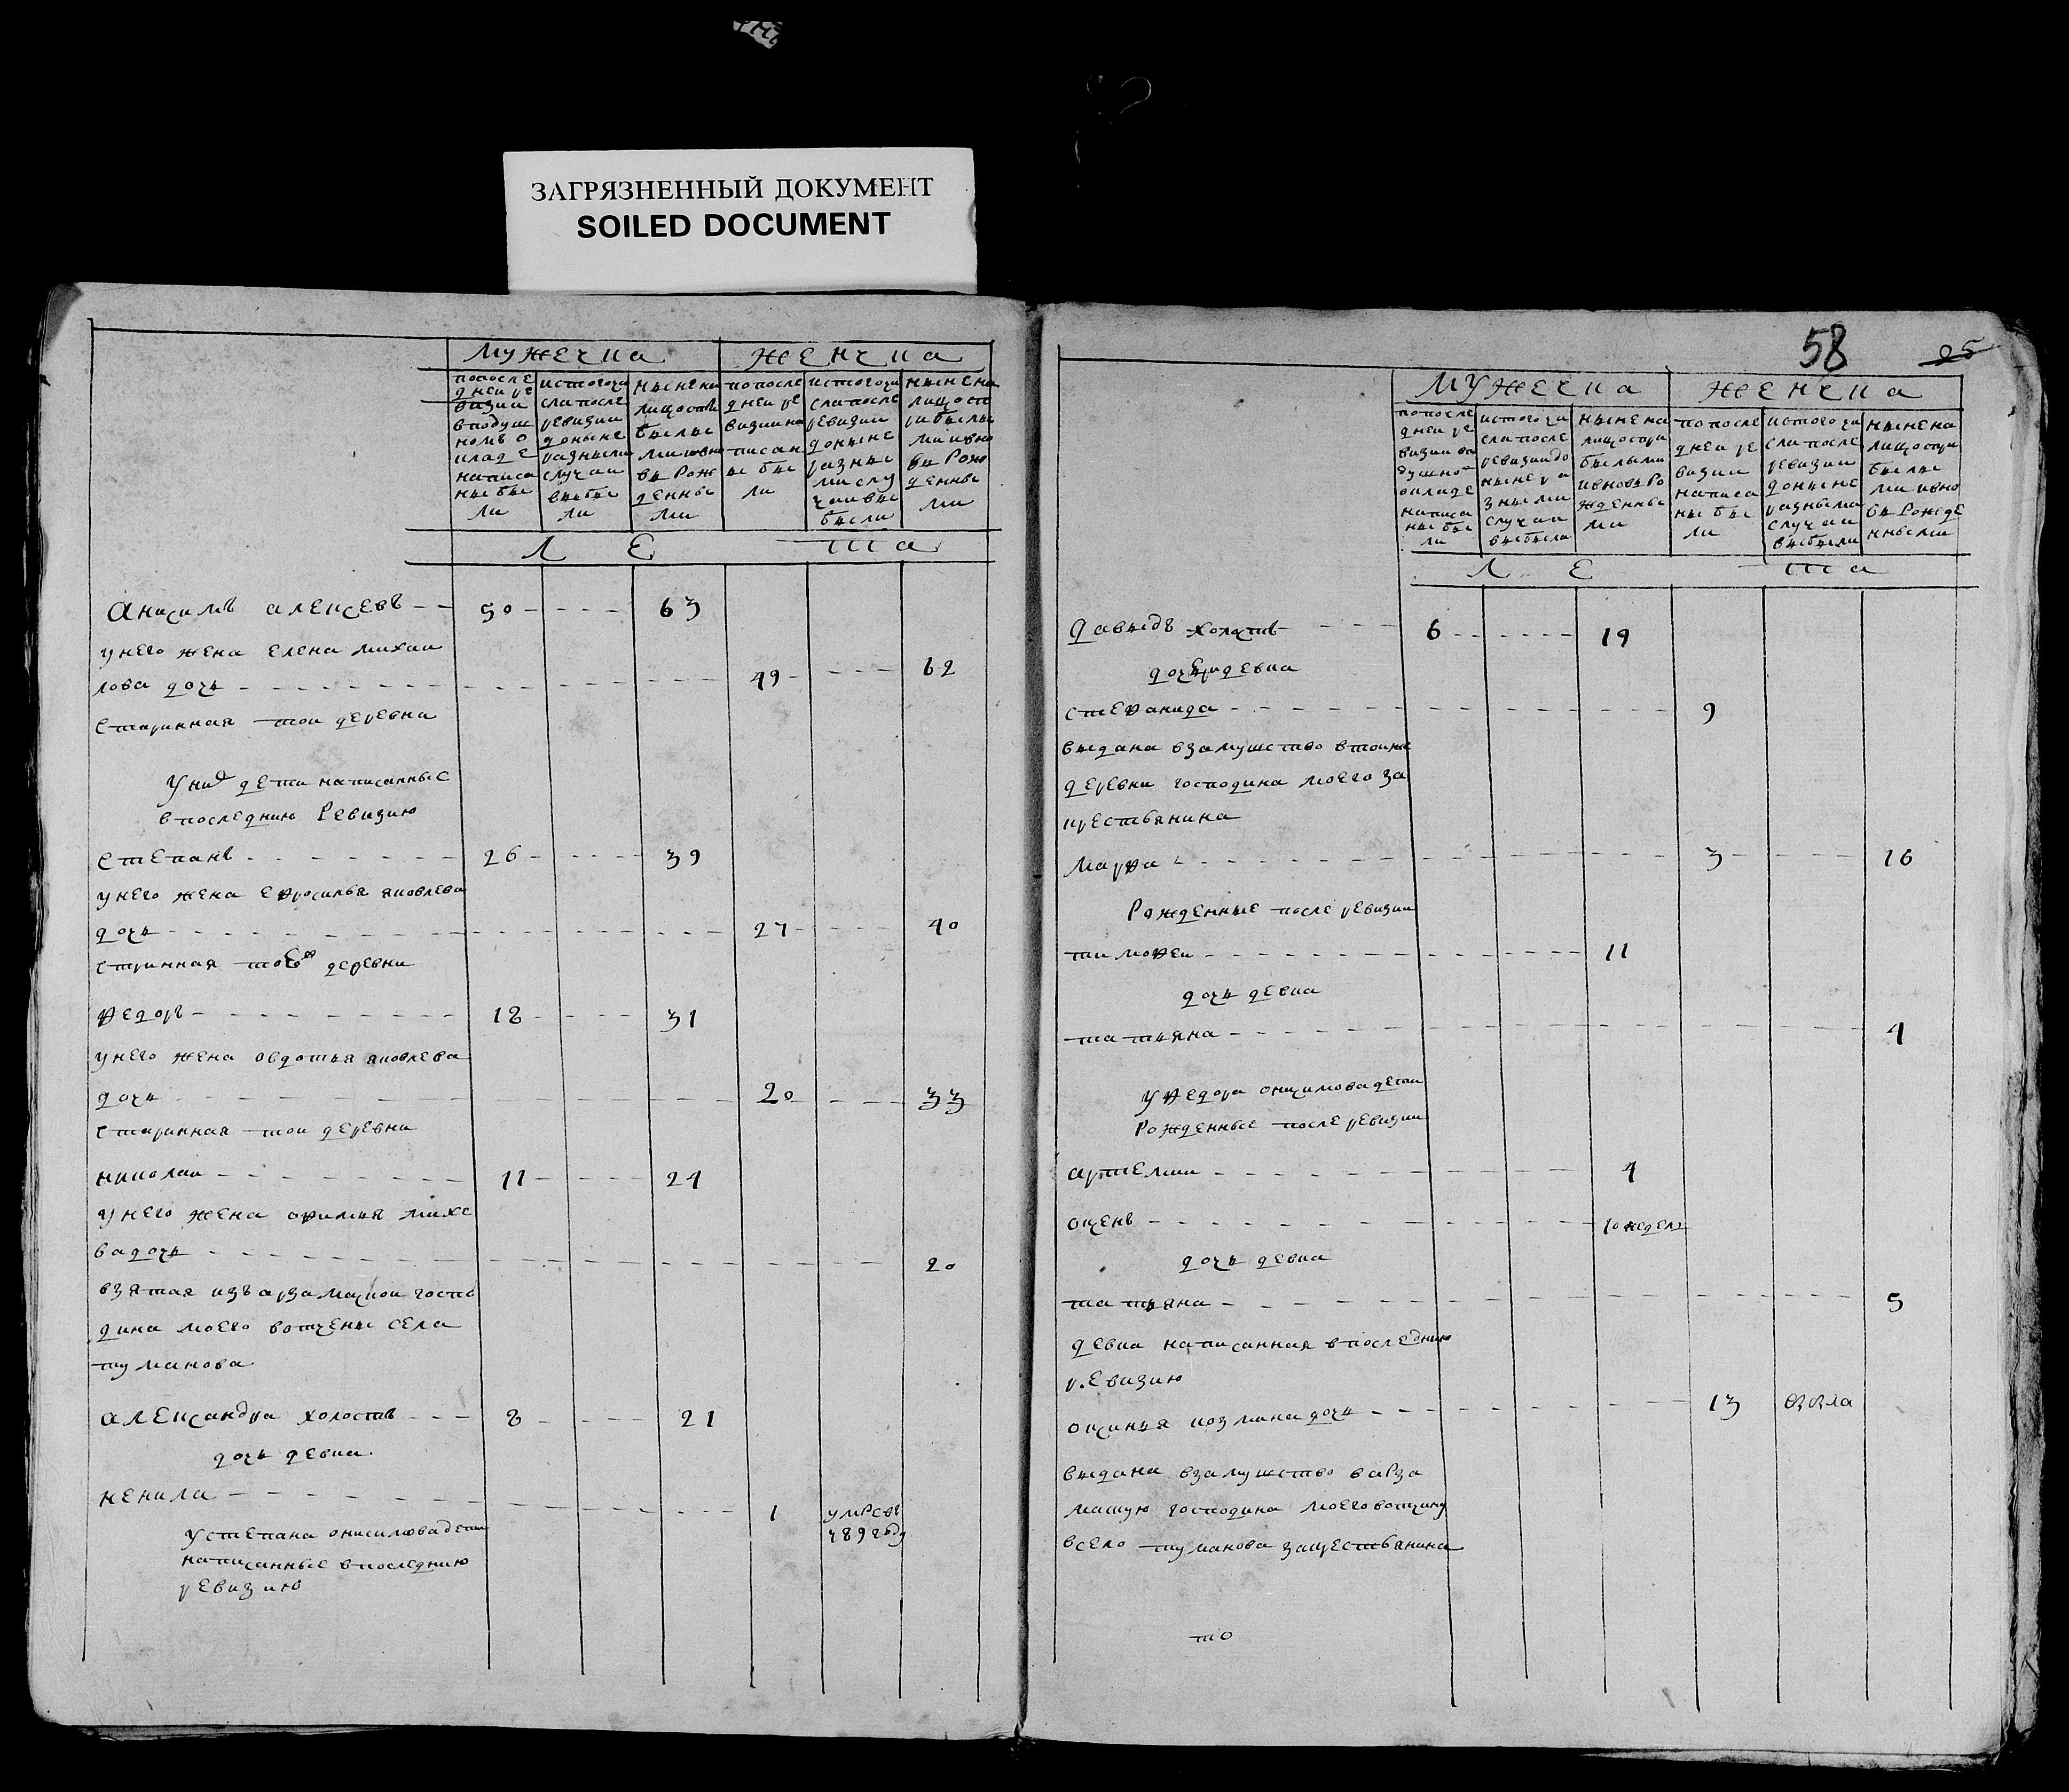 ЗАГРЯЗНЕННЫЙ ДОКУМЕНТ
SOILED DOCUMENT
мужеска женска
попосле
дней ре
визии
вподуш
номъ о
кладе
написа
ны бы
ли
истогочи
сла после
ревизии
доныне
разными
случаи
выбы
ли
ныне на
лицо
былы
ми вно
вь рож
денны
ми
попосле
дней ре
визии на
писан
ы бы
ли
истогочи
сла после
ревизии
доныне
разны
ми слу
чаи вы
были
ныне на
лицо
былы
ми ивно
вь рож
денны
ми
Л Е та
Анисимъ алексевъ 50 63
унего жена елена михаи
лова дочь 49 62
старинная тои деревни
У них дети написанные
в последнию Ревизию
степанъ 26 39
унего жена ефросинья яковлева
дочь 27 40
стринная тое ж деревни
Федоръ 18 31
унего жена овдотья яковлева
дочь 20 33
старинная тои деревни
николаи 11 24
унего жена офимья михе
ва дочь 20
взятая изъ арзамаской госпо
дина моего вотчены села
туманова
александра холостъ 8 21
дочь девка
ненила 1 умре въ
789 году
У степана онисимова дети
написанные в последнию
ревизию
58 25
мужеска женска
попосле
дней ре
визии
душно
окладе
написа
ны бы
ли
истогочи
сла после
ревизиидо
ныне ра
зными
случаи
выбыли
ныне на
лицо при
былыми
ивновь ро
жденны
ми
попосле
дней ре
визии
написа
ны бы
ли
истогочи
сла после
ревизии
доныне
разными
случаи
выбыли
ныне на
лицо при
былы
ми ивно
вь рожде
нныеми
Л Е та
Давыдъ холостъ 6 19
дочери девки
стефанида 9
выдана взамужство втоиже
деревни господина моего за
крестьянина
марфа 3 16
Рожденные после ревизии
тимофеи 11
дочь девка
татьяна 4
У Федора онисимова дети
Рожденные после ревизии
артемии 4
осипъ 10 недель
дочь девка
татьяна 5
девка написанная в последнию
ревизию
оксинья козмина дочь 13
выдана взамужство варза
маскую господина моего вотчину
всело туманова закрестьянина
то